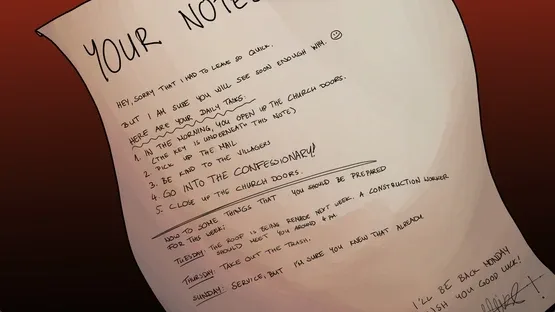 YOUR NOTES
HEY, SORRY THAT I HAD TO LEAVE SO QUICK.
BUT I AM SURE YOU WILL SEE SOON ENOUGH WHY. ☺
HERE ARE YOUR DAILY TASKS.
1. IN THE MORNING, YOU OPEN UP THE CHURCH DOORS.
(THE KEY IS UNDERNEATH THIS NOTE)
2. PICK UP THE MAIL
3. BE KIND TO THE VILLAGERS
4. GO INTO THE CONFESSIONARY!
5. CLOSE UP THE CHURCH DOORS.
NOW TO SOME THINGS THAT YOU SHOULD BE PREPARED
FOR THIS WEEK;
TUESDAY: THE ROOF IS BEING REMADE NEXT WEEK, A CONSTRUCTION WORKER
SHOULD MEET YOU AROUND 4 PM.
THURSDAY: TAKE OUT THE TRASH.
SUNDAY: SERVICE, BUT I'M SURE YOU KNEW THAT ALREADY
I'LL BE BACK MONDAY
WISH YOU GOOD LUCK!